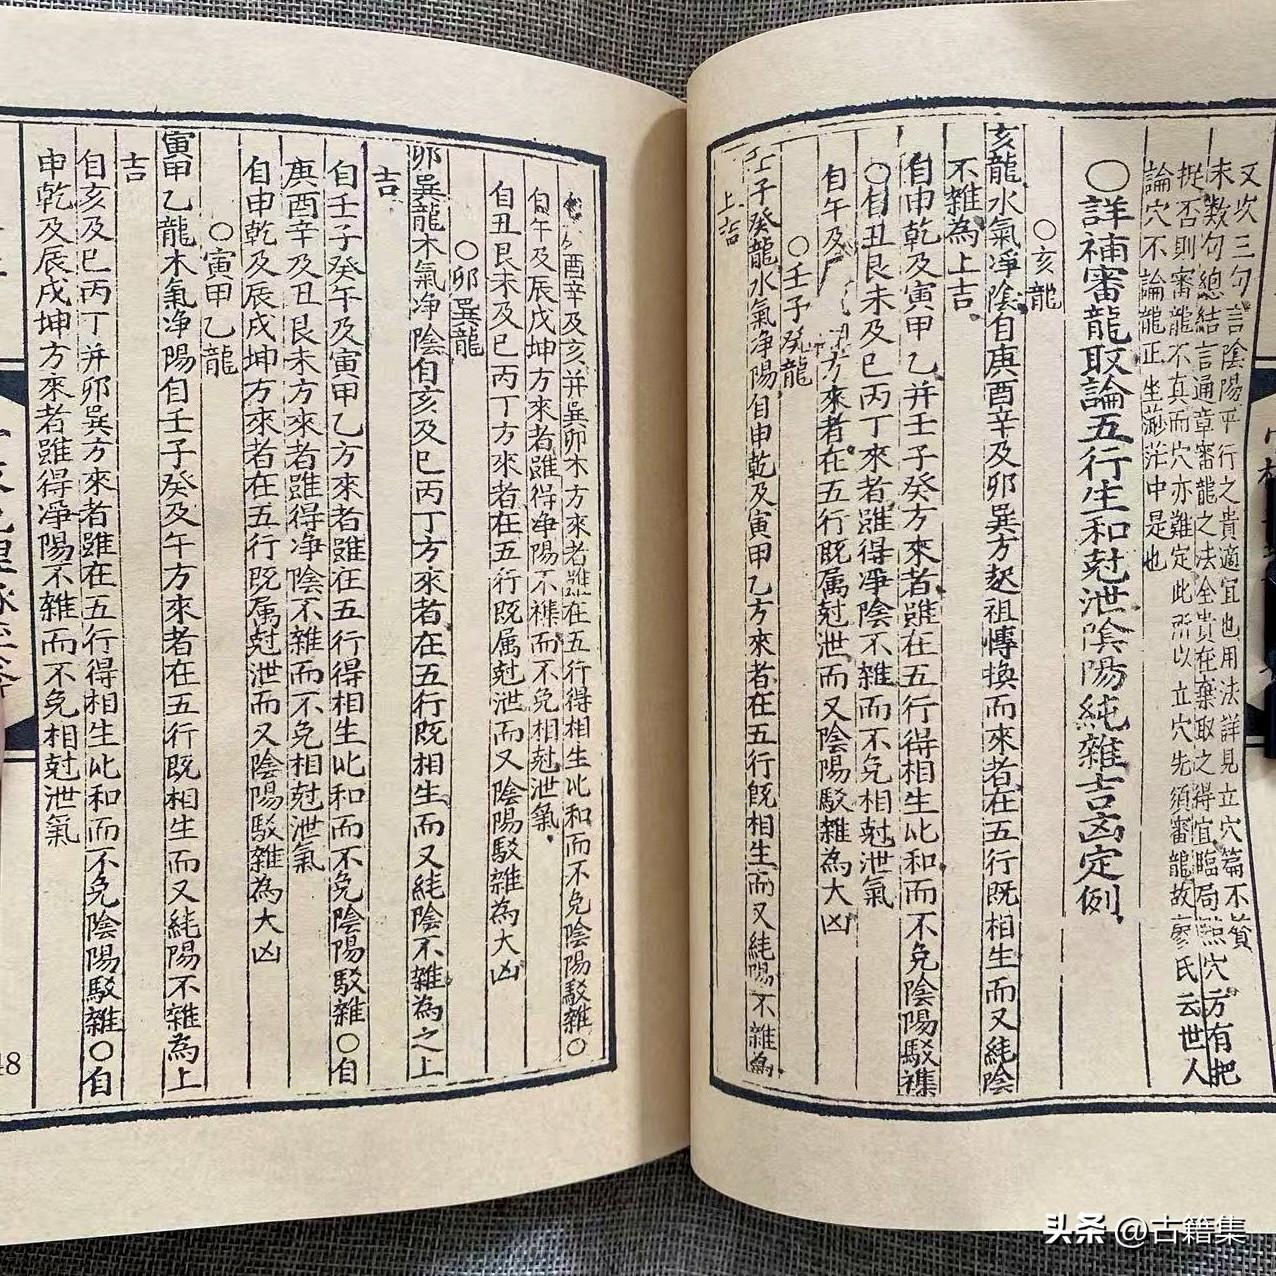 又次三句言陰陽平行之貴適宜也用法詳見立穴篇不貧
末數句總結言通章審龍之法全貴在棄取之得宜臨局點穴方有把
捉否則審龍不真而穴亦難定此所以立穴先須審龍故廖氏云世人
論穴不論龍正坐渺茫中是也
○詳補審龍取論五行生和尅泄陰陽純雜吉凶定例
○亥龍
亥龍水氣凈陰自庚酉辛及卯巽方起祖傳換而來者在五行既相生而又純陰
不雜為上吉
自申乾及寅甲乙并壬子癸方來者雖在五行得相生比和而不免陰陽駁襍
○自丑艮未及巳丙丁來者雖得凈陰不雜而不免相尅泄氣
自午及方來者在五行既属尅泄而又陰陽駁雜為大凶
○壬子癸龍
壬子癸龍水氣净陽自申乾及寅甲乙方來者在五行既相生而又純陽不雜為
上吉
酉辛及亥并巽卯木方來者雖在五行得相生比和而不免陰陽駁雜○
自午及辰戊坤方來者雖得净陽不襍而不免相尅泄氣
自丑艮未及巳丙丁方來者在五行既属尅泄而又陰陽駁雜為大凶
○卯巽龍
卯巽龍木氣净陰自亥及巳丙丁方來者在五行既相生而又純陰不雜為之上
吉
自壬子癸午及寅甲乙方來者雖在五行得相生比和而不免陰陽駁雜○自
庚酉辛及丑艮未方來者雖得净陰不雜而不免相尅泄氣
自申乾及辰戌坤方來者在五行既属尅泄而又陰陽駁雜為大凶
○寅甲乙龍
寅甲乙龍木氣净陽自壬子癸及午方來者在五行既相生而又純陽不雜為上
吉
自亥及巳丙丁并卯巽方來者雖在五行得相生比和而不免陰陽駁雜○自
申乾及辰戌坤方來者雖得凈陽不雜而不免相尅泄氣
48
头条 @古籍集